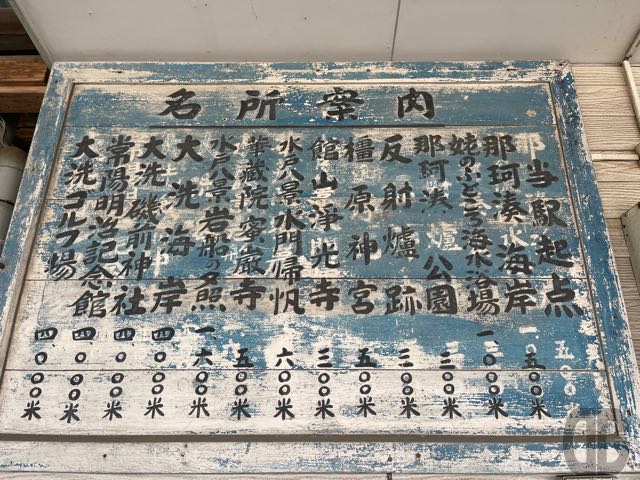 名所案内
当駅起点
那珂湊海岸 一、五〇〇米
姥のふところ海水浴場 一、〇〇〇米
那珂湊公園 三〇〇米
反射爐跡 三〇〇米
橿原神宮 五〇〇米
館山浄光寺 三〇〇米
水戸八景水門帰帆 六〇〇米
華蔵院蜜巌寺 五〇〇米
水戸八景岩船夕照 一、六〇〇米
大洗海岸 四、〇〇〇米
大洗磯前神社 四、〇〇〇米
常陽明治記念館 四、〇〇〇米
大洗ゴルフ場 四、〇〇〇米